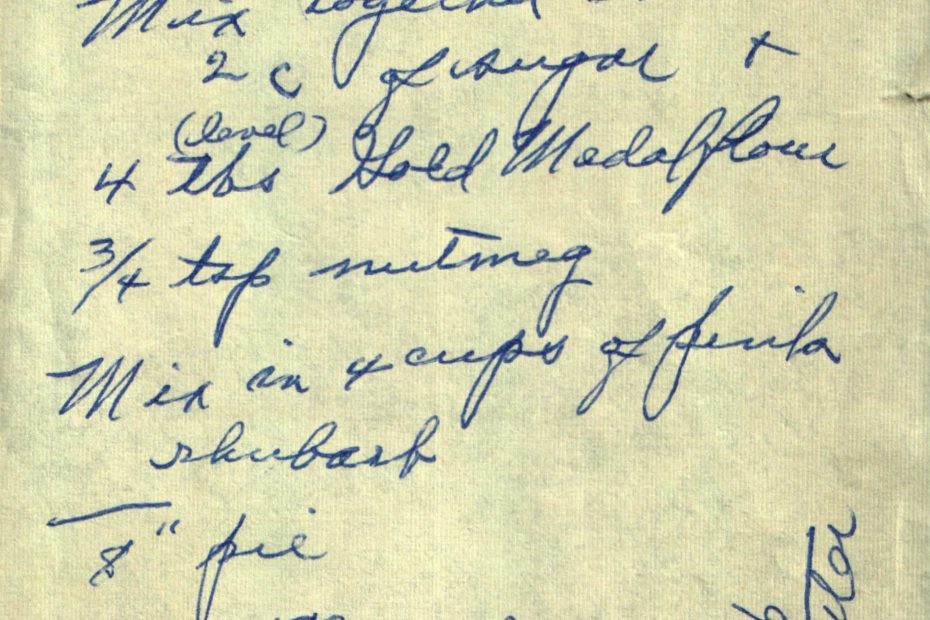 Mix together
2 c of sugar +
(level)
4 tbs Gold Medal flour
3/4 tsp nutmeg
Mix in 4 cups of pink
rhubarb
8" pie